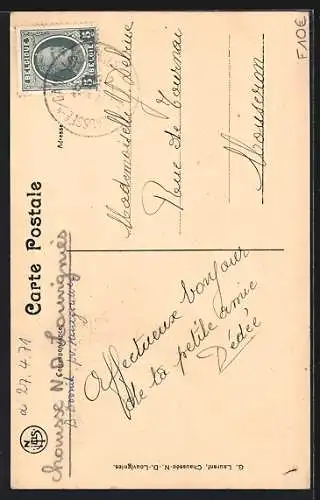 F10€
BELGIQUE
BELGIË
15
15
Carte Postale
Correspondance
Adresse
Mademoiselle Y. Delrue
Rue de Tournai
Mouscron
Affectueux bonjour
de la petite amie
Dédée
chaussée N.D. Louvignies
a 27.4.71
G. Laurent, Chaussée-N.-D.-Louvignies.